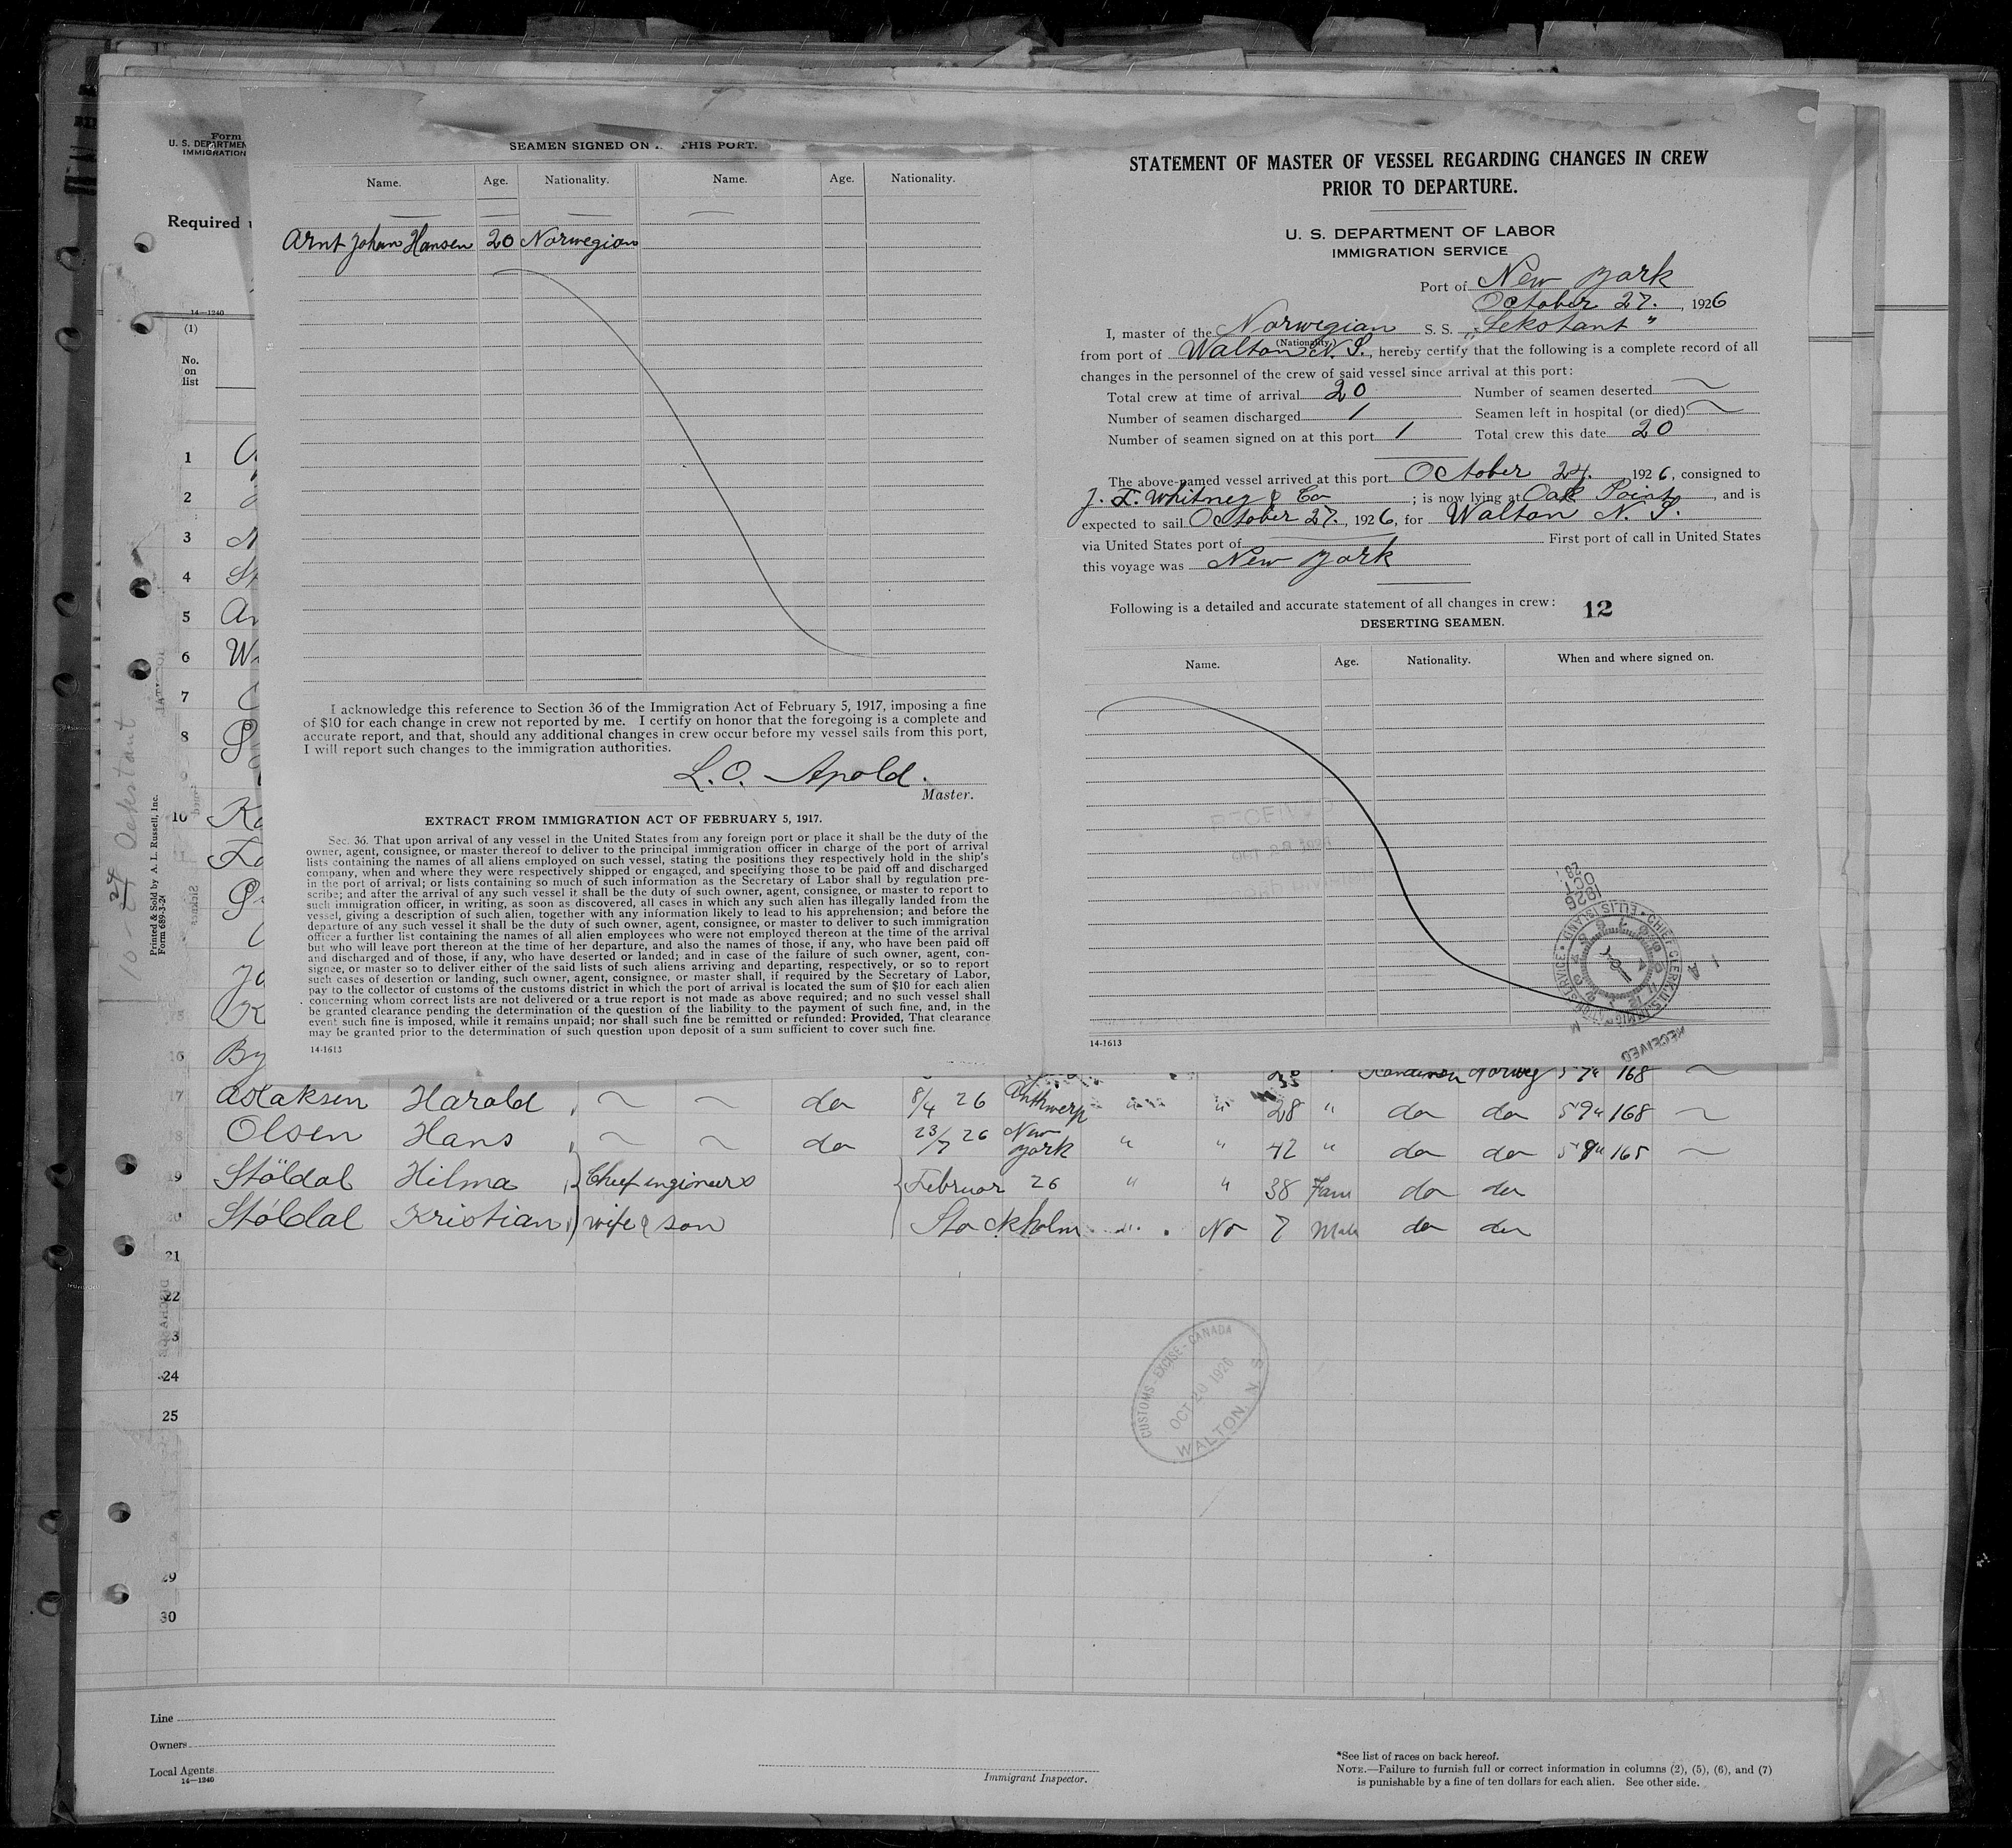 Form
U. S. DEPARTMEN
IMMIGRATION
Required
14—1240
(1)
No.
on
list
1
2
3
4
5
6
7
8
10
16
Printed & Sold by A. L. Russell, Inc.
Form 689-3-24
SEAMEN SIGNED ON THIS PORT.
Name. Age. Nationality. Name. Age. Nationality.
Arnt Johan Hansen 20 Norwegian
I acknowledge this reference to Section 36 of the Immigration Act of February 5, 1917, imposing a fine
of $10 for each change in crew not reported by me. I certify on honor that the foregoing is a complete and
accurate report, and that, should any additional changes in crew occur before my vessel sails from this port,
I will report such changes to the immigration authorities.
L. O. Apold.
Master.
EXTRACT FROM IMMIGRATION ACT OF FEBRUARY 5, 1917.
Sec. 36. That upon arrival of any vessel in the United States from any foreign port or place it shall be the duty of the
owner, agent, consignee, or master thereof to deliver to the principal immigration officer in charge of the port of arrival
lists containing the names of all aliens employed on such vessel, stating the positions they respectively hold in the ship's
company, when and where they were respectively shipped or engaged, and specifying those to be paid off and discharged
in the port of arrival; or lists containing so much of such information as the Secretary of Labor shall by regulation pre-
scribe; and after the arrival of any such vessel it shall be the duty of such owner, agent, consignee, or master to report to
such immigration officer, in writing, as soon as discovered, all cases in which any such alien has illegally landed from the
vessel, giving a description of such alien, together with any information likely to lead to his apprehension; and before the
departure of any such vessel it shall be the duty of such owner, agent, consignee, or master to deliver to such immigration
officer a further list containing the names of all alien employees who were not employed thereon at the time of the arrival
but who will leave port thereon at the time of her departure, and also the names of those, if any, who have been paid off
and discharged and of those, if any, who have deserted or landed; and in case of the failure of such owner, agent, con-
signee, or master so to deliver either of the said lists of such aliens arriving and departing, respectively, or so to report
such cases of desertion or landing, such owner, agent, consignee, or master shall, if required by the Secretary of Labor,
pay to the collector of customs of the customs district in which the port of arrival is located the sum of $10 for each alien
concerning whom correct lists are not delivered or a true report is not made as above required; and no such vessel shall
be granted clearance pending the determination of the question of the liability to the payment of such fine, and, in the
event such fine is imposed, while it remains unpaid; nor shall such fine be remitted or refunded: Provided, That clearance
may be granted prior to the determination of such question upon deposit of a sum sufficient to cover such fine.
14-1613
STATEMENT OF MASTER OF VESSEL REGARDING CHANGES IN CREW
PRIOR TO DEPARTURE.
U. S. DEPARTMENT OF LABOR
IMMIGRATION SERVICE
Port of New York
October 27. , 1926
I, master of the Norwegian S. S. "Sekstant"
(Nationality)
from port of Walton N. S., hereby certify that the following is a complete record of all
changes in the personnel of the crew of said vessel since arrival at this port:
Total crew at time of arrival 20 Number of seamen deserted
Number of seamen discharged 1 Seamen left in hospital (or died)
Number of seamen signed on at this port 1 Total crew this date 20
The above-named vessel arrived at this port October 24. 1926, consigned to
J. F. Whitney & Co ; is now lying at Oak Point , and is
expected to sail October 27., 1926, for Walton N. S.
via United States port of First port of call in United States
this voyage was New York
Following is a detailed and accurate statement of all changes in crew: 12
DESERTING SEAMEN.
Name. Age. Nationality. When and where signed on.
RECEIVED
CHIEF CLERK U.S. IMMIGRATION SERVICE • ELLIS ISLAND
1926
OCT
RECEIVED
14-1613
Norweg 5'7" 168
17 Aslaksen Harald do 8/4 26 Anthwerp " " 28 " do do 5'9" 168
18 Olsen Hans do 23/7 26 New York " " 42 " do do 5'9" 165
19 Stöldal Hilma Cheef engineers Februar 26 " " 38 Fam do do
20 Stöldal Kristian wife & son Stockholm " No 7 Male do do
21
22
23
24
25
29
30
CUSTOMS - EXCISE - CANADA
OCT 20 1926
WALTON, N. S.
Line
Owners
Local Agents
14—1240
Immigrant Inspector.
*See list of races on back hereof.
NOTE.—Failure to furnish full or correct information in columns (2), (5), (6), and (7)
is punishable by a fine of ten dollars for each alien. See other side.